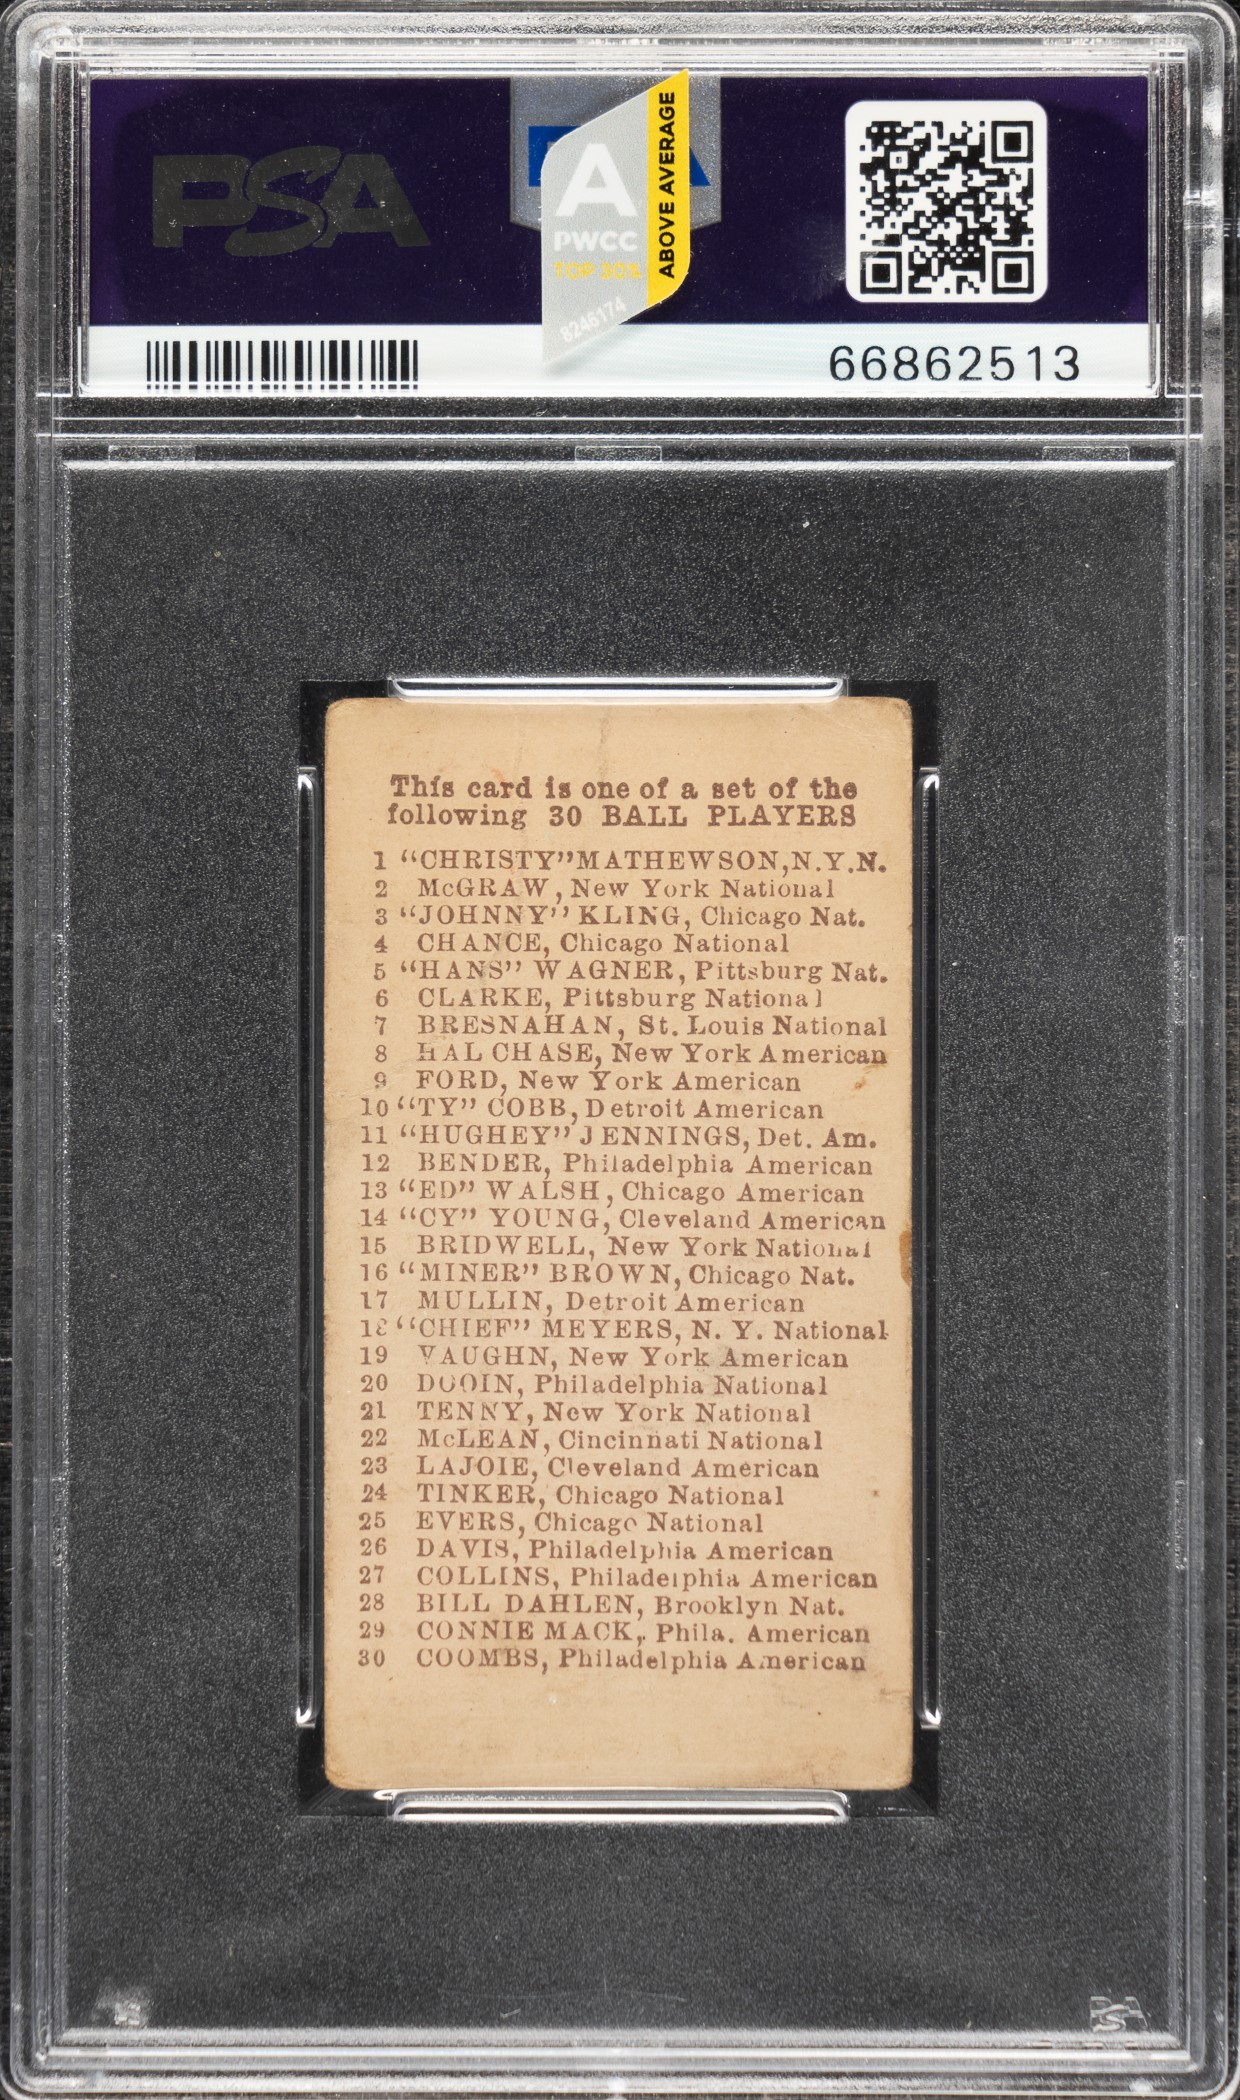 PSA
A
PWCC
TOP 30%
ABOVE AVERAGE
8246174
66862513
This card is one of a set of the
following 30 BALL PLAYERS
1 "CHRISTY" MATHEWSON, N.Y.N.
2 McGRAW, New York National
3 "JOHNNY" KLING, Chicago Nat.
4 CHANCE, Chicago National
5 "HANS" WAGNER, Pittsburg Nat.
6 CLARKE, Pittsburg National
7 BRESNAHAN, St. Louis National
8 HAL CHASE, New York American
9 FORD, New York American
10 "TY" COBB, Detroit American
11 "HUGHEY" JENNINGS, Det. Am.
12 BENDER, Philadelphia American
13 "ED" WALSH, Chicago American
14 "CY" YOUNG, Cleveland American
15 BRIDWELL, New York National
16 "MINER" BROWN, Chicago Nat.
17 MULLIN, Detroit American
18 "CHIEF" MEYERS, N. Y. National
19 VAUGHN, New York American
20 DOOIN, Philadelphia National
21 TENNY, New York National
22 McLEAN, Cincinnati National
23 LAJOIE, Cleveland American
24 TINKER, Chicago National
25 EVERS, Chicago National
26 DAVIS, Philadelphia American
27 COLLINS, Philadelphia American
28 BILL DAHLEN, Brooklyn Nat.
29 CONNIE MACK, Phila. American
30 COOMBS, Philadelphia American
PSA